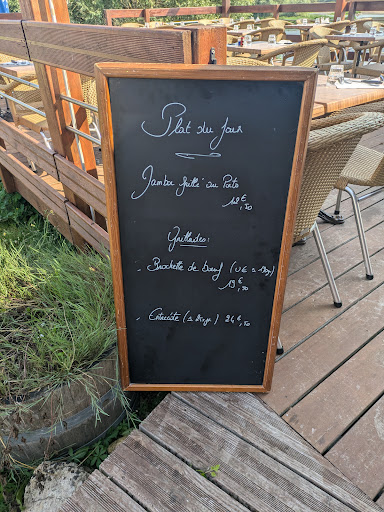 Plat du jour
Jambon grillé au Porto
18€,50
Grillades:
- Brochette de bœuf (
19€,50
- Entrecôte ( 24€,50